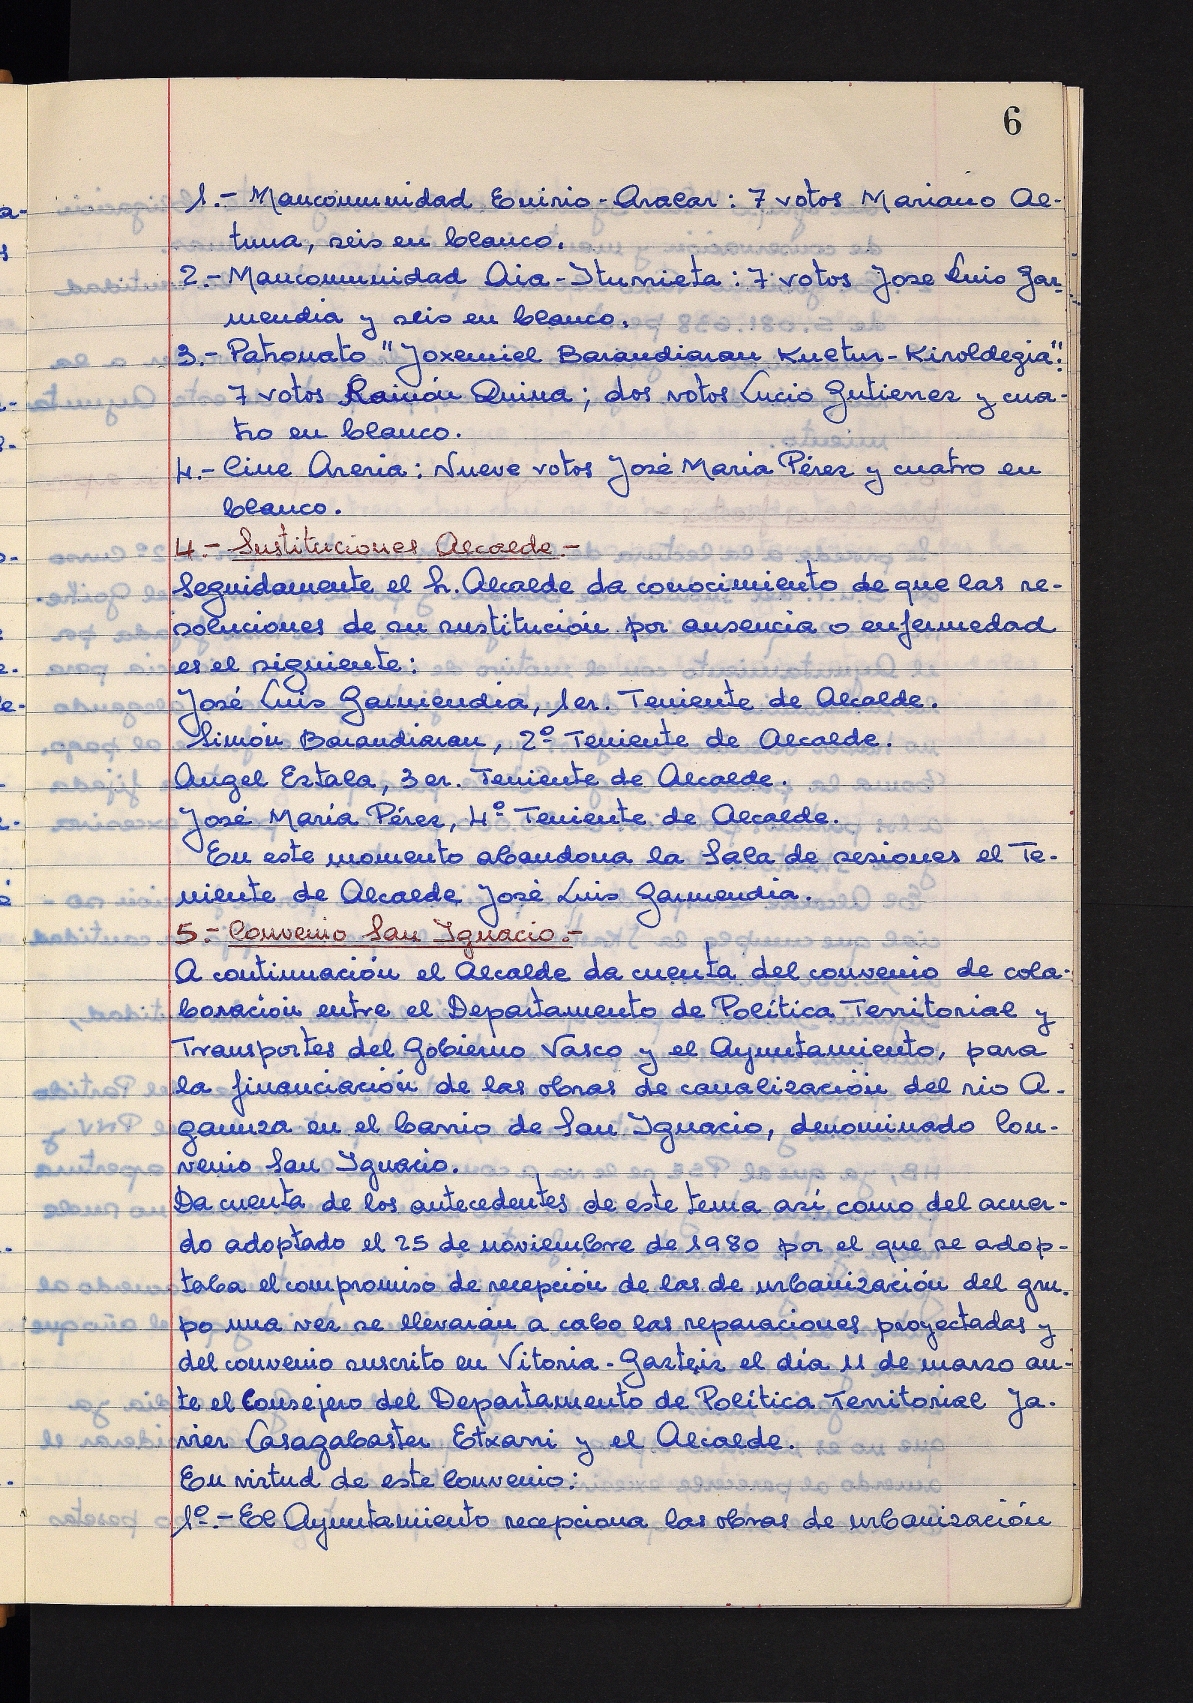 6
1.- Mancomunidad Enirio-Aralar: 7 votos Mariano Al-
tuna, seis en blanco.
2.- Mancomunidad Aia-Iturrieta: 7 votos Jose Luis Gar-
mendia y seis en blanco.
3.- Patronato "Joxemiel Barandiaran Kultur-Kiroldegia":
7 votos Ramón Quina; dos votos Lucio Gutierrez y cua-
tro en blanco.
4.- Cine Areria: Nueve votos José Maria Pérez y cuatro en
blanco.
4.- Sustituciones Alcalde.-
Seguidamente el Sr. Alcalde da conocimiento de que las re-
soluciones de su sustitución por ausencia o enfermedad
es el siguiente:
José Luis Garmendia, 1er. Teniente de Alcalde.
Simón Barandiaran, 2º Teniente de Alcalde.
Angel Estala, 3er. Teniente de Alcalde.
José María Pérez, 4º Teniente de Alcalde.
En este momento abandona la Sala de sesiones el Te-
niente de Alcalde José Luis Garmendia.
5.- Convenio San Ignacio.-
A continuación el Alcalde da cuenta del convenio de cola-
boración entre el Departamento de Política Territorial y
Transportes del Gobierno Vasco y el Ayuntamiento, para
la financiación de las obras de canalización del rio A-
gaunza en el barrio de San Ignacio, denominado Con-
venio San Ignacio.
Da cuenta de los antecedentes de este tema así como del acuer-
do adoptado el 25 de noviembre de 1980 por el que se adop-
taba el compromiso de recepción de las de urbanización del gru-
po una vez se llevarán a cabo las reparaciones proyectadas y
del convenio suscrito en Vitoria-Gasteiz el día 11 de marzo an-
te el Consejero del Departamento de Política Territorial Ja-
vier Casagabaster Etxarri y el Alcalde.
En virtud de este Convenio:
1º.- El Ayuntamiento recepciona las obras de urbanización